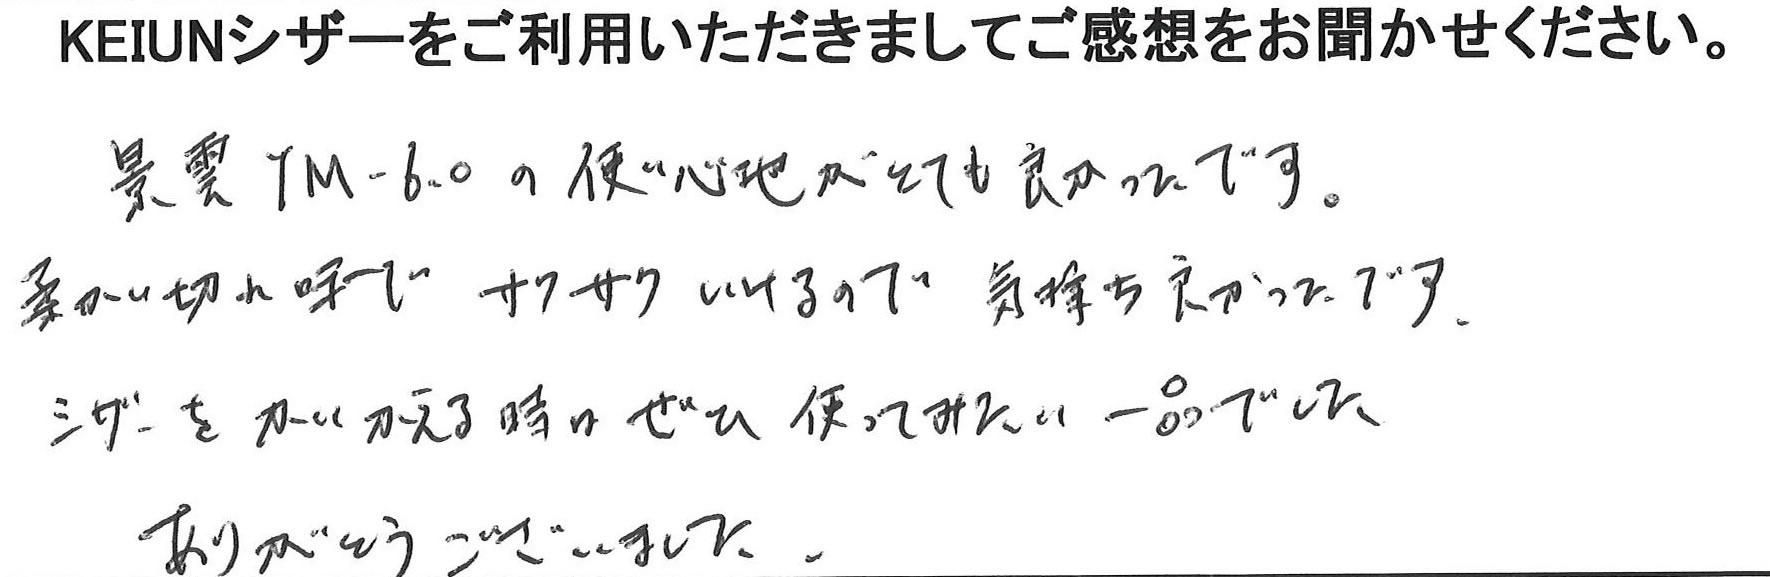 KEIUNシザーをご利用いただきましてご感想をお聞かせください。
景雲YM-6.0の使い心地がとても良かったです。
柔かい切れ味でサクサクいけるので気持ち良かったです.
シザーをかいかえる時はぜひ使ってみたい一品でした
ありがとうございました.